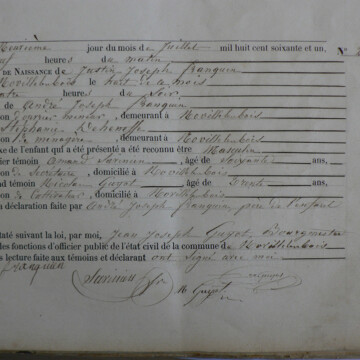 neuvième jour du mois de Juillet mil huit cent soixante et un, N°
heures du matin
DE NAISSANCE de Justin Joseph Franquin
Novillelesbois, le huit de ce mois
quatre heures du Soir
de André Joseph Franquin
on d' , demeurant à Novillelesbois
Stéphanie
on de menagère, demeurant à Novillelesbois
xe de l'enfant qui a été présenté a été reconnu être Masculin
ier témoin Amand , âgé de Soixante ans,
on de Secrétaire, domicilié à Novillelesbois
nd témoin Nicolas Guyot, âgé de Trente ans,
on de Cultivateur, domicilié à Novillelesbois
a déclaration faite par André Joseph Franquin, père de l'enfant
taté suivant la loi, par moi, Jean Joseph Guyot, Bourgmestre
des fonctions d'officier public de l'état civil de la commune de Novillelesbois
s lecture faite aux témoins et déclarant ont signé avec moi
Franquin
N Guyot